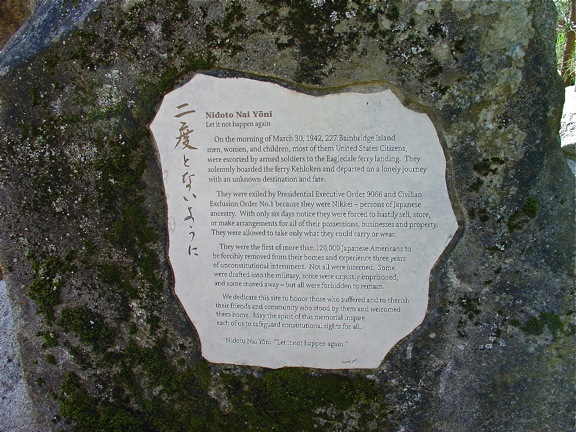 二度とないように
Nidoto Nai Yōni
Let it not happen again
On the morning of March 30, 1942, 227 Bainbridge Island
men, women, and children, most of them United States Citizens,
were escorted by armed soldiers to the Eagledale ferry landing. They
solemnly boarded the ferry Kehloken and departed on a lonely journey
with an unknown destination and fate.
They were exiled by Presidential Executive Order 9066 and Civilian
Exclusion Order No.1 because they were Nikkei – persons of Japanese
ancestry. With only six days notice they were forced to hastily sell, store,
or make arrangements for all of their possessions, businesses and property.
They were allowed to take only what they could carry or wear.
They were the first of more than 120,000 Japanese Americans to
be forcibly removed from their homes and experience three years
of unconstitutional internment. Not all were interned. Some
were drafted into the military, some were unjustly imprisoned,
and some moved away – but all were forbidden to remain.
We dedicate this site to honor those who suffered and to cherish
their friends and community who stood by them and welcomed
them home. May the spirit of this memorial inspire
each of us to safeguard constitutional rights for all.
Nidoto Nai Yōni "Let it not happen again."